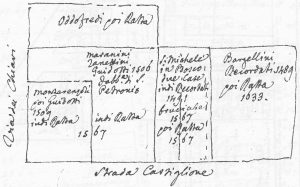 Oddofredi poi Ratta
Via de Chiari
monzarenzoli
poi Guidotti
1509
indi Ratta
1567
masanini
Zanettini
Guidotti 1506
Dabb.a di S.
Petronio
indi Ratta
67
S. Michele
in Bosco
due Case
indi Recordati
1491
bruciabasi
1567
poi Ratta
1567
Bargellini
Recordati 1489
poi Ratta
1633.
Strada Castiglione